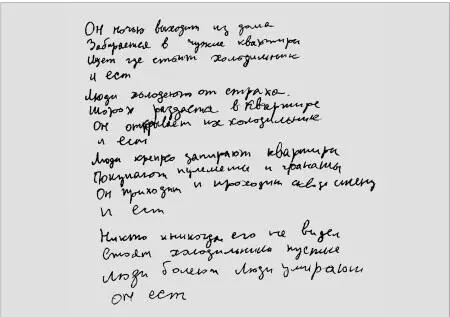 Он ночью выходит из дома
Забирается в чужие квартиры
Ищет где стоит холодильник
и ест
Люди холодеют от страха.
Шорох раздастся в квартире
Он открывает их холодильник
и ест
Люди крепко запирают квартиры
Покупают пулеметы и гранаты
Он приходит и проходит сквозь стену
И ест
Никто никогда его не видел
Стоят холодильники пустые
Люди болеют люди умирают
он ест